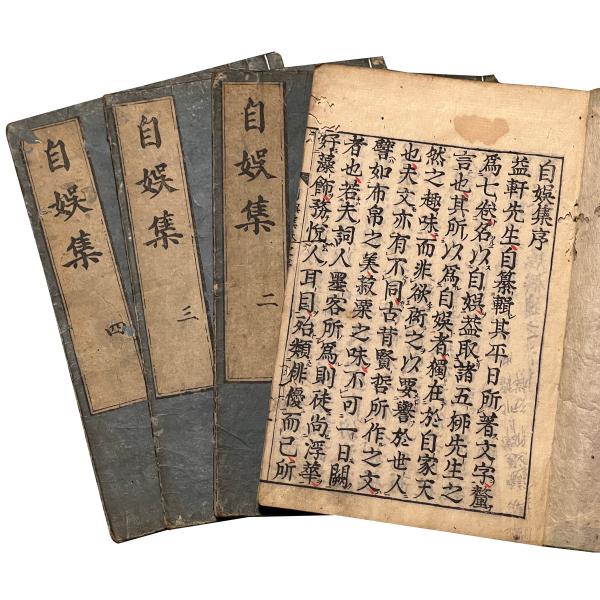 自娯集序
益軒先生自纂輯其平日所著文字釐
爲七卷名以自娯益取諸五柳先生之
言也其所以爲自娯者獨在於自家天
然之趣味而非欲衒之以要譽於世人
也夫文亦有不同古昔賢哲所作之文
譬如布帛之美菽粟之味不可一日闕
者也若夫詞人墨客所爲則徒尚浮華
好藻飾務悅人耳目殆類俳優而已所
自娯集
二
自娯集
三
自娯集
四